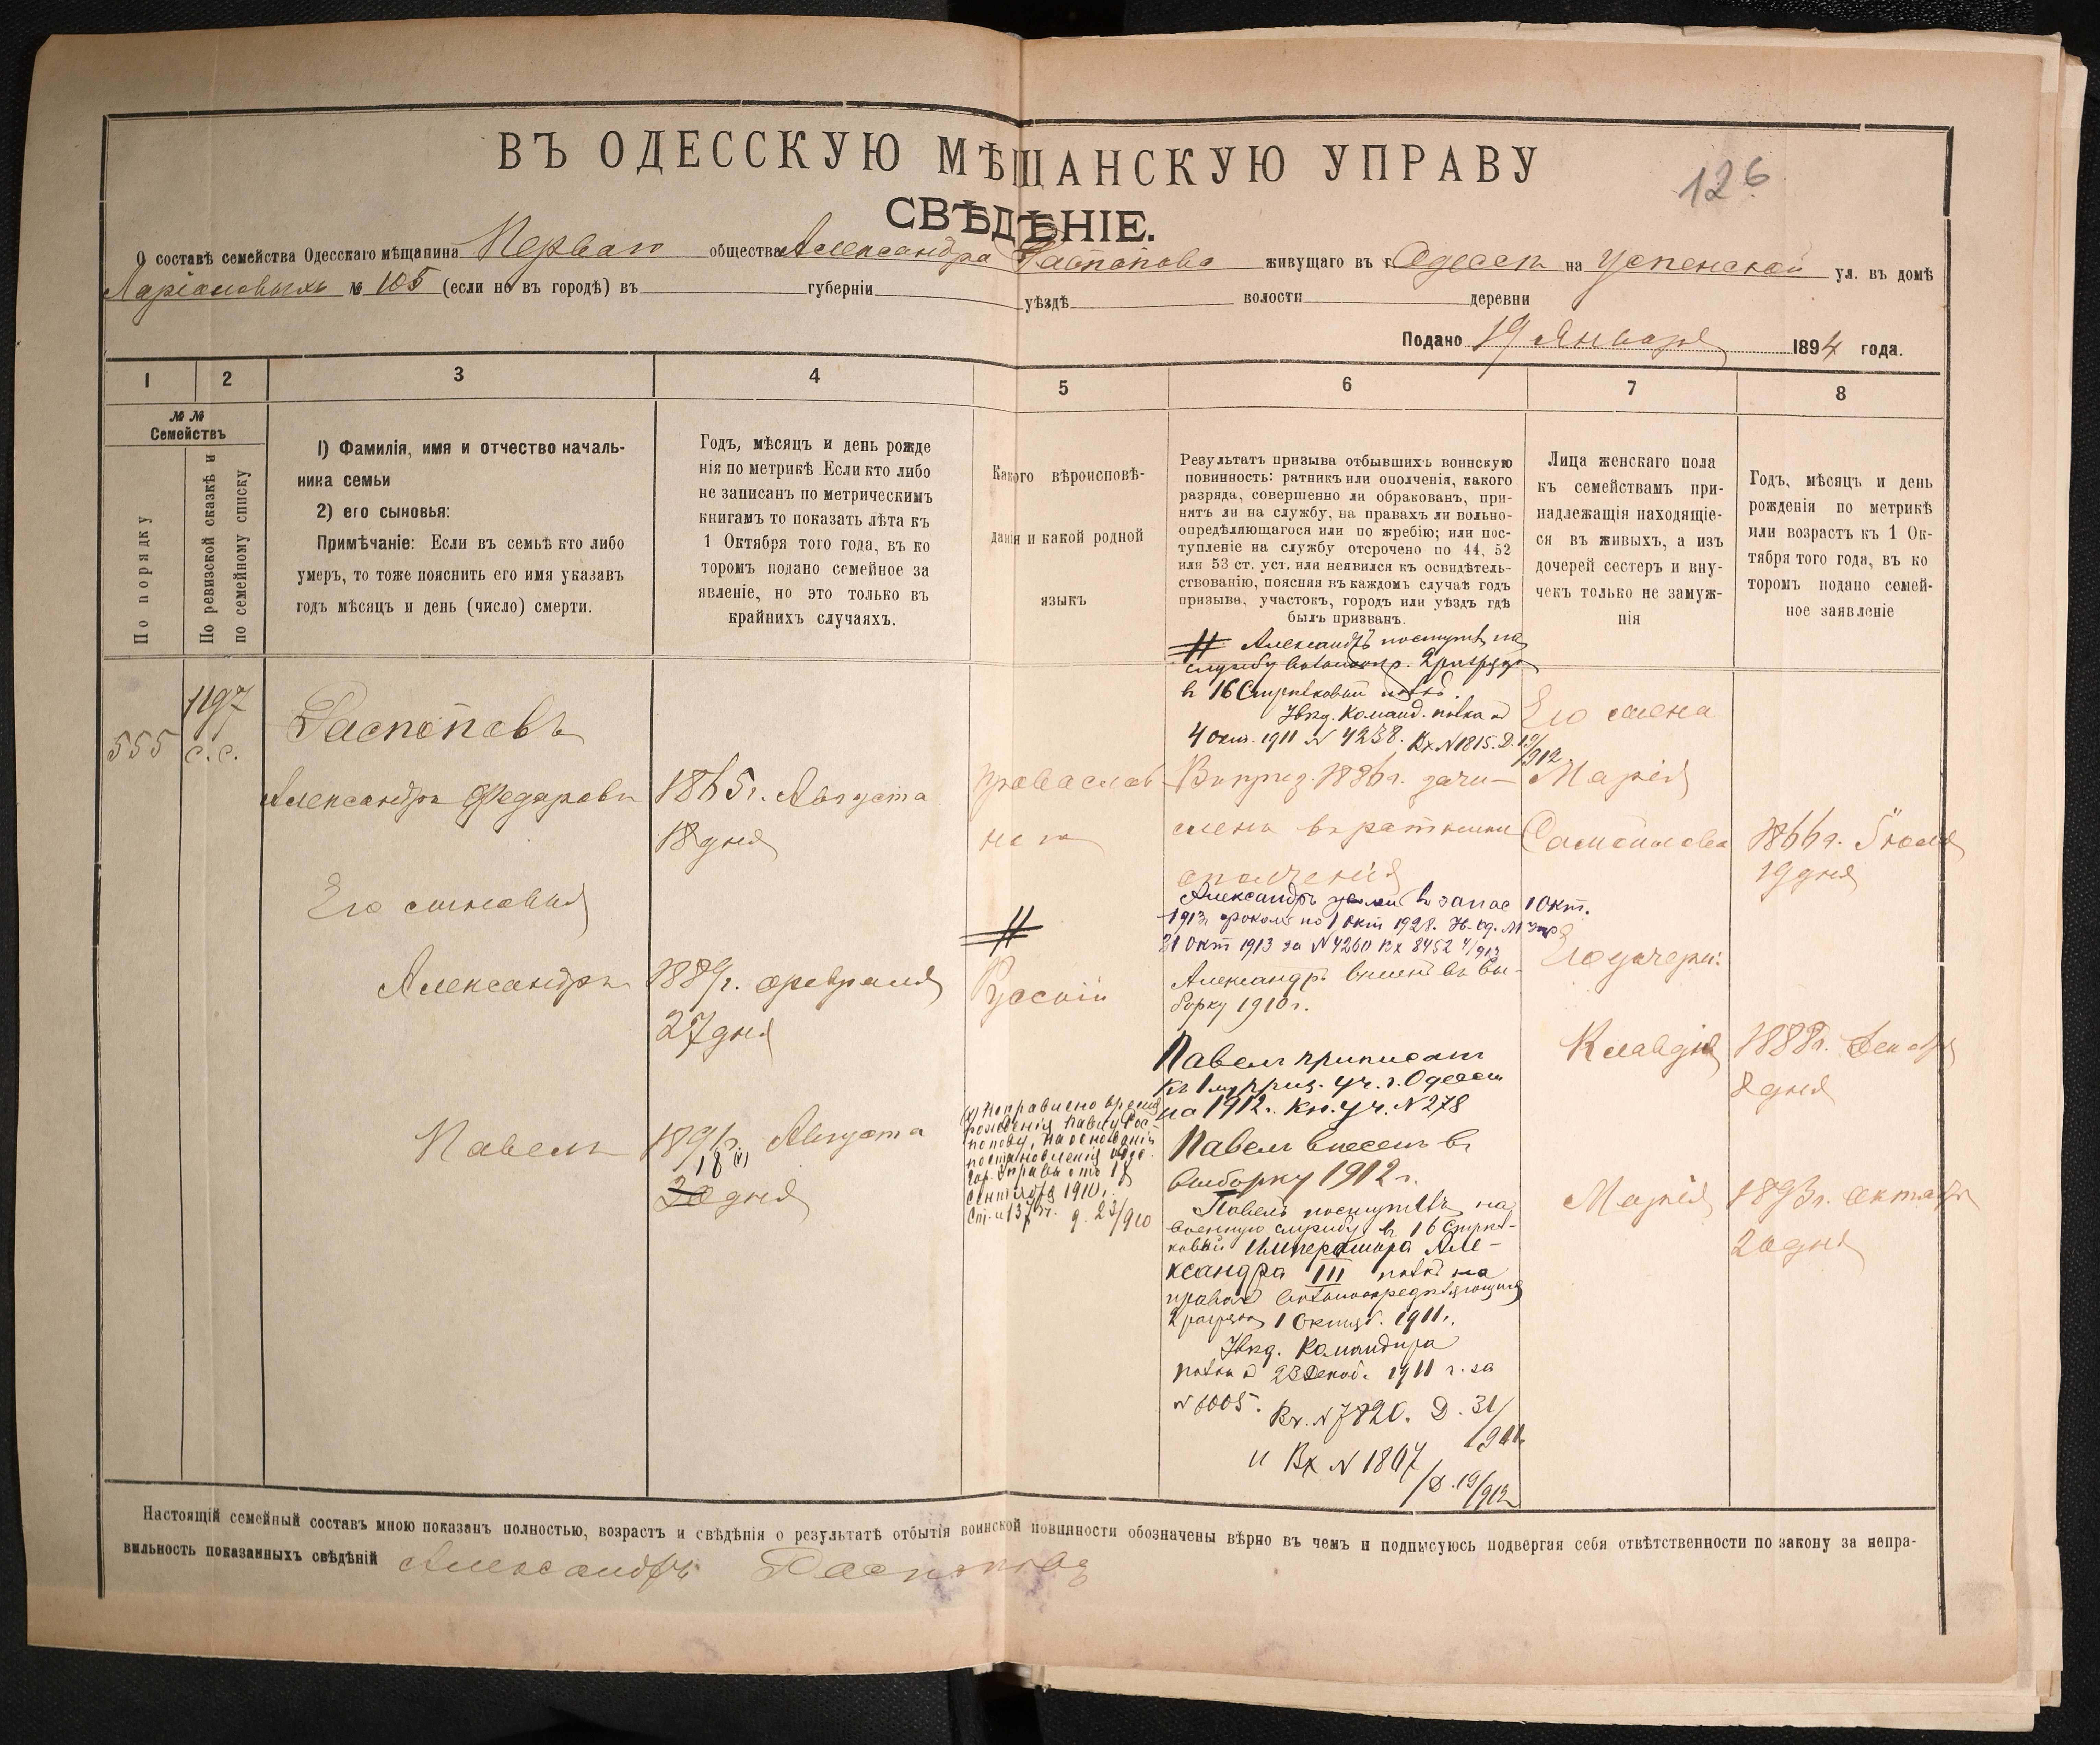 ВЪ ОДЕССКУЮ МѢЩАНСКУЮ УПРАВУ
126
СВѢДѢНІЕ.
О составѣ семейства Одесскаго мѣщанина Перваго общества Александра Распопова живущаго въ г. Одессѣ на Успенской ул. въ домѣ
Ларіоновыхъ № 105 (если не въ городѣ) въ губерніи уѣздѣ волости деревни
Подано 19 Января 1894 года.
1 2 3 4 5 6 7 8
№ №
Семействъ
По порядку
По ревизской сказкѣ и
по семейному списку
1) Фамилія, имя и отчество началь-
ника семьи
2) его сыновья:
Примѣчаніе: Если въ семьѣ кто либо
умеръ, то тоже пояснить его имя указавъ
годъ мѣсяцъ и день (число) смерти.
Годъ, мѣсяцъ и день рожде
нія по метрикѣ Если кто либо
не записанъ по метрическимъ
книгамъ то показать лѣта къ
1 Октября того года, въ ко
торомъ подано семейное за
явленіе, но это только въ
крайнихъ случаяхъ.
Какого вѣроисповѣ-
данія и какой родной
языкъ
Результатъ призыва отбывшихъ воинскую
повинность: ратникъ или ополченія, какого
разряда, совершенно ли обракованъ, при-
нятъ ли на службу, на правахъ ли вольно-
опредѣляющагося или по жребію; или пос-
тупленіе на службу отсрочено по 44, 52
или 53 ст. уст. или неявился къ освидѣтель-
ствованію, поясняя въ каждомъ случаѣ годъ
призыва, участокъ, городъ или уѣздъ гдѣ
былъ призванъ.
Лица женскаго пола
къ семействамъ при-
надлежащія находящіе-
ся въ живыхъ, а изъ
дочерей сестеръ и вну-
чекъ только не замуж-
нія
Годъ, мѣсяцъ и день
рожденія по метрикѣ
или возрастъ къ 1 Ок-
тября того года, въ ко
торомъ подано семей-
ное заявленіе
555
1197
с.с.
Распоповъ
Александръ Федоровъ
1865 г. Августа
18 дня
Его сыновья
Александръ
1889 г. февраля
27 дня
Павелъ
1891 г. Августа
18 (х)
20 дня
православ
наго
#
Русскій
(х) Исправлено время
рожденія Павлу Рас-
попову, на основаніи
постановленія
Гор. управы отъ 18
Сентября 1910 г.
9. 23/910
# Александръ поступ. на
службу вольноопр. 2 разряда
въ 16 Стрѣлковый полкъ.
Увѣд. Команд. полка отъ
4 окт. 1911 № 4238. Вх № 1815. Д. 19/912
В призыв. 1886 г. зачи-
сленъ въ ратники
ополченія
Александръ въ запас 1 Окт.
1913 г. сроком по 1 Окт 1928.
31 Окт 1913 за № 4260 Вх 8452
Александръ внесенъ въ вы-
борку 1910 г.
Павелъ приписанъ
къ 1 му приз. уч. г. Одессы
на 1912 г. Кн. уч. № 278
Павелъ внесенъ въ
выборку 1912 г.
Павелъ поступилъ на
военную службу въ 16 Стрѣл-
ковый Императора Але-
ксандра III полкъ на
правахъ вольноопредѣляющагося
2 разряда 1 Октяб. 1911 г.
Увѣд. Командира
полка отъ 23 Декаб. 1911 г. за
№ 6005. Вх. № 7820. Д. 31/
1911
и Вх № 1807
/Д. 19/912
Его жена
Марія
Самойлова
1866 г. Іюля
19 дня
Его дочери:
Клавдія
1888 г. Декабря
8 дня
Марія
1893 г. Октября
20 дня
Настоящій семейный составъ мною показанъ полностью, возрастъ и свѣдѣнія о результатѣ отбытія воинской повинности обозначены вѣрно въ чемъ и подписуюсь подвергая себя отвѣтственности по закону за непра-
вильность показанныхъ свѣдѣній Александръ Распоповъ